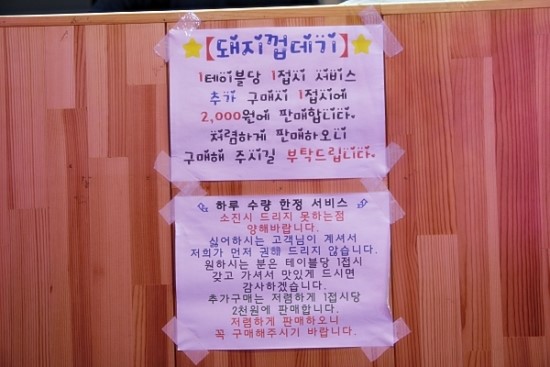 【돼지껍데기】
1테이블당 1접시 서비스
추가 구매시 1접시에
2,000원에 판매합니다.
저렴하게 판매하오니
구매해 주시길 부탁드립니다.
하루 수량 한정 서비스
소진시 드리지 못하는점
양해바랍니다.
싫어하시는 고객님이 계셔서
저희가 먼저 권해 드리지 않습니다.
원하시는 분은 테이블당 1접시
갖고 가셔서 맛있게 드시면
감사하겠습니다.
추가구매는 저렴하게 1접시당
2천원에 판매합니다.
저렴하게 판매하오니
꼭 구매해주시기 바랍니다.